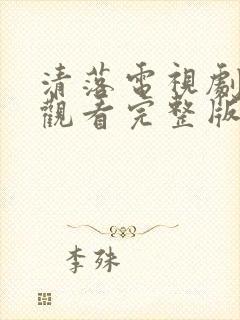 清落電視劇
觀看完整版
李殊